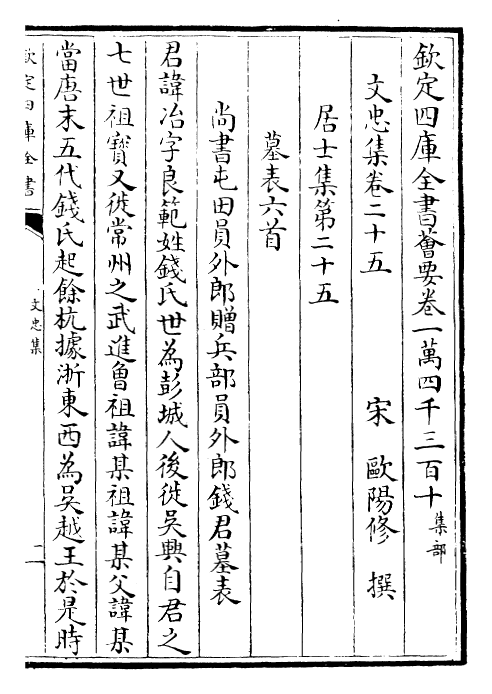 欽定四庫全書薈要卷一萬四千三百十 集部
文忠集卷二十五 宋 歐陽修 撰
居士集第二十五
墓表六首
尚書屯田員外郎贈兵部員外郎錢君墓表
君諱冶字良範姓錢氏世為彭城人後徙吳興自君之
七世祖寳又徙常州之武進曾祖諱某祖諱某父諱某
當唐末五代錢氏起餘杭據浙東西為吳越王於是時
欽定四庫全書
文忠集